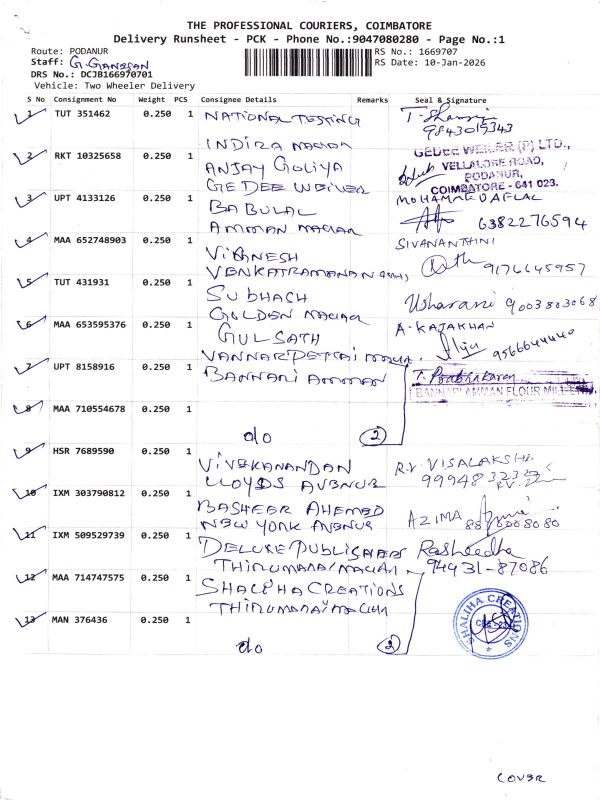 THE PROFESSIONAL COURIERS, COIMBATORE
Delivery Runsheet - PCK - Phone No.:9047080280 - Page No.:1
Route: PODANUR
RS No.: 1669707
Staff: G. GANESAN
RS Date: 10-Jan-2026
DRS No.: DCJB166970701
Vehicle: Two Wheeler Delivery
S No Consignment No Weight PCS Consignee Details Remarks Seal & Signature
1 TUT 351462 0.250 1 NATIONAL TESTING
INDIRA NAGAR
9843019343
2 RKT 10325658 0.250 1 ANJAY GOLIYA
GEDEE WEILER
GEDEE WEILER (P) LTD.,
VELLALORE ROAD,
PODANUR,
COIMBATORE - 641 023.
3 UPT 4133126 0.250 1 BABULAL
AMMAN NAGAR
MOHAMMED AFLAL
6382276594
4 MAA 652748903 0.250 1 VIGNESH
VENKATRAMANAN
SIVANANTHINI
9176645957
5 TUT 431931 0.250 1 SUBHASH
GOLDEN NAGAR
Usharani 9003803068
6 MAA 653595376 0.250 1 GULSATH
VANNARPETTAI
A. KAJAKHAN
9566644440
7 UPT 8158916 0.250 1 BANNARI AMMAN
T. Prabhakaran
BANNARI AMMAN FLOUR MILL
8 MAA 710554678 0.250 1
do 2
9 HSR 7689590 0.250 1 VIVEKANANDAN
LLOYDS AVENUE
R.V. VISALAKSHI
10 IXM 303790812 0.250 1 BASHEER AHEMED
NEW YORK AVENUE
AZIMA
11 IXM 509529739 0.250 1 DELUXE PUBLISHERS
THIRUMARAI NAGAR
Rasheedha
94431-87086
12 MAA 714747575 0.250 1 SHALIHA CREATIONS
THIRUMARAI NAGAR
13 MAN 376436 0.250 1
do 2
SHALIHA CREATIONS
COVER